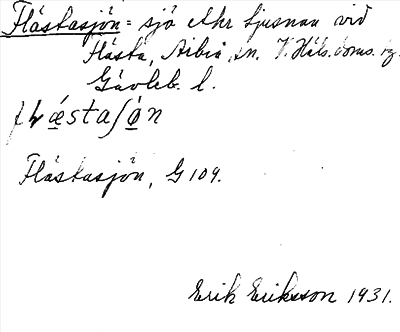 Flåstasjön = sjö elhr Ljusnan vid
Flåsta, Arbrå, sn. V. Häls. doms. hg.
Gävleb. l.
Flåstasjön, G 109.
Erik Eriksson 1931.